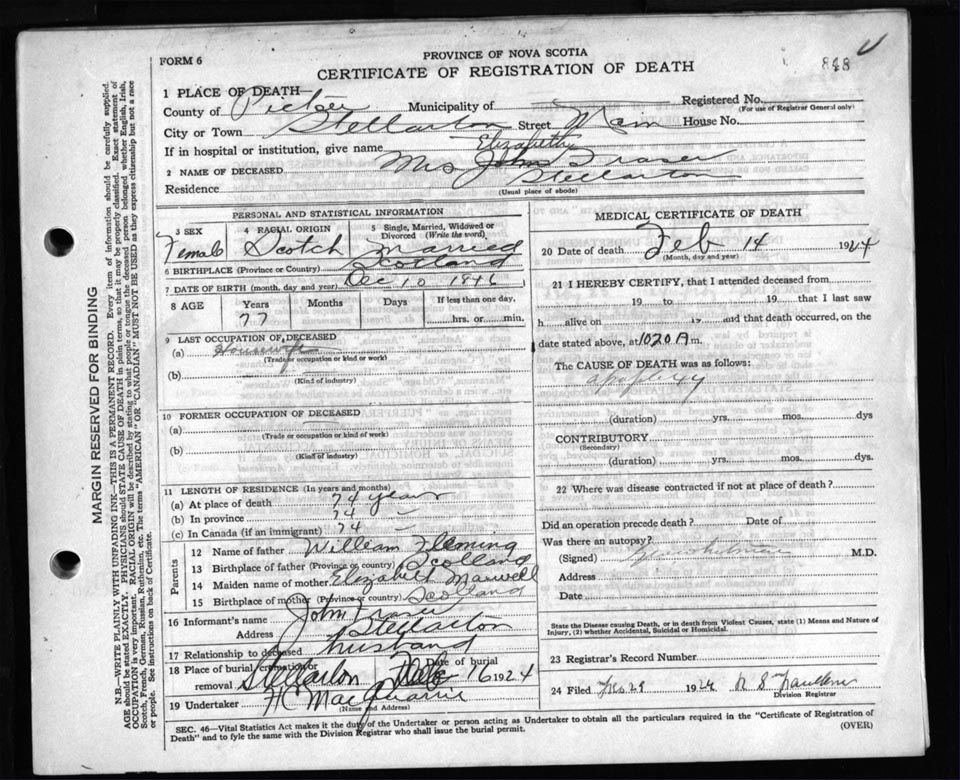 848
FORM 6
PROVINCE OF NOVA SCOTIA
CERTIFICATE OF REGISTRATION OF DEATH
1 PLACE OF DEATH—
County of Pictou Municipality of Registered No.
(For use of Registrar General only)
City or Town Stellarton Street Main House No.
If in hospital or institution, give name
Elizabeth
2 NAME OF DECEASED Mrs John Fraser
Residence Stellarton
(Usual place of abode)
PERSONAL AND STATISTICAL INFORMATION
3 SEX 4 RACIAL ORIGIN 5 Single, Married, Widowed or Divorced (Write the word)
Female Scotch Married
6 BIRTHPLACE (Province or Country) Scotland
7 DATE OF BIRTH (month, day and year) Dec 10 1846
8 AGE Years Months Days If less than one day,
77 hrs. or min.
9 LAST OCCUPATION OF DECEASED
(a) Housewife
(Trade or occupation or kind of work)
(b)
(Kind of industry)
10 FORMER OCCUPATION OF DECEASED
(a)
(Trade or occupation or kind of work)
(b)
(Kind of industry)
11 LENGTH OF RESIDENCE (In years and months)
(a) At place of death 74 years
(b) In province 74 –
(c) In Canada (if an immigrant) 74 –
Parents
12 Name of father William Fleming
13 Birthplace of father (Province or country) Scotland
14 Maiden name of mother Elizabeth Maxwell
15 Birthplace of mother (Province or country) Scotland
16 Informant's name John Fraser
Address Stellarton
17 Relationship to deceased husband
18 Place of burial, cremation or removal Stellarton Date of burial Feb 16 1924
19 Undertaker H MacQuarrie
(Name and Address)
MEDICAL CERTIFICATE OF DEATH
20 Date of death Feb 14 1924
(Month, day and year)
21 I HEREBY CERTIFY, that I attended deceased from
19 to 19 that I last saw
h alive on 19 and that death occurred, on the
date stated above, at 1020 A m.
The CAUSE OF DEATH was as follows:
(duration) yrs. mos. dys
CONTRIBUTORY
(Secondary)
(duration) yrs. mos. dys.
22 Where was disease contracted if not at place of death?
Did an operation precede death? Date of
Was there an autopsy?
(Signed) M.D.
Address
Date
State the Disease causing Death, or in death from Violent Causes, state (1) Means and Nature of
Injury, (2) whether Accidental, Suicidal or Homicidal.
23 Registrar's Record Number
24 Filed 1924
Division Registrar
SEC. 46—Vital Statistics Act makes it the duty of the Undertaker or person acting as Undertaker to obtain all the particulars required in the "Certificate of Registration of
Death" and to fyle the same with the Division Registrar who shall issue the burial permit.
(OVER)
MARGIN RESERVED FOR BINDING
N.B.—WRITE PLAINLY WITH UNFADING INK—THIS IS A PERMANENT RECORD. Every item of information should be carefully supplied.
AGE should be stated EXACTLY. PHYSICIANS should STATE CAUSE OF DEATH in plain terms, so that it may be properly classified. Exact statement of
OCCUPATION is very important. RACIAL ORIGIN will be described by stating to what people or tongue the deceased person belonged whether English, Irish,
Scotch, French, German, Russian, Ruthenian, etc. The terms "AMERICAN" or "CANADIAN" MUST NOT BE USED as they express citizenship but not a race
or people. See instructions on back of Certificate.